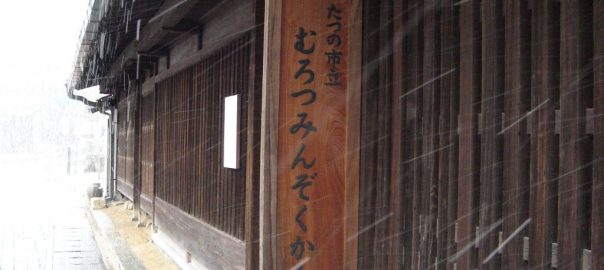 たつの市立
むろつみんぞくか